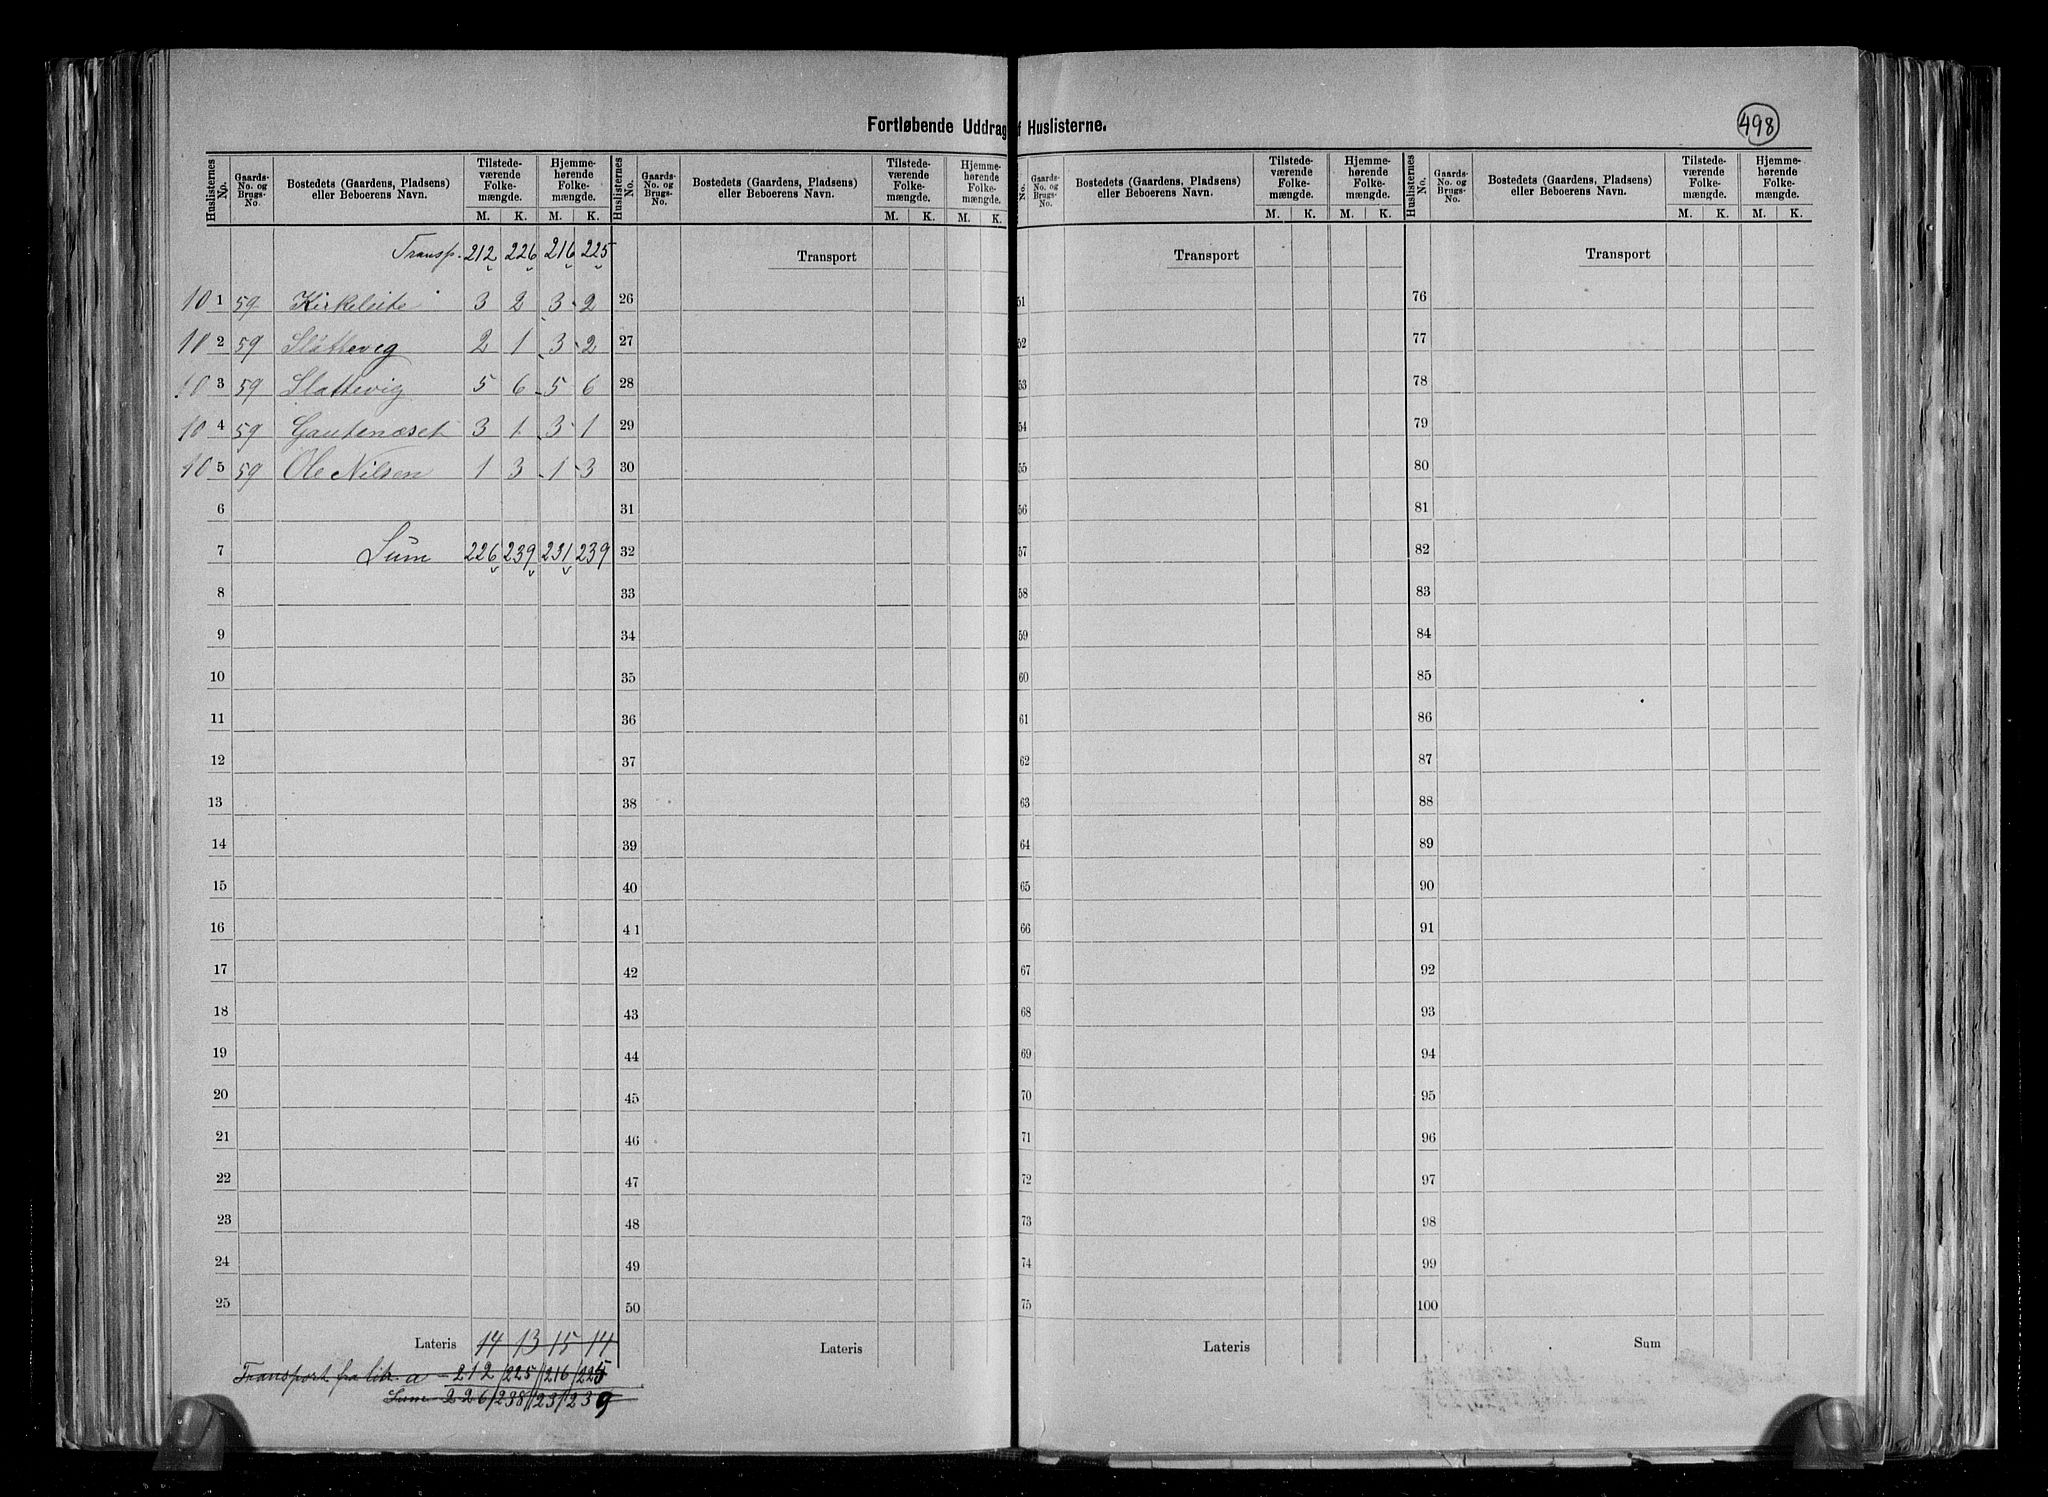 Fortløbende Uddrag f Huslisterne.
498
Huslisternes No. | Gaards-No. og Brugs-No. | Bostedets (Gaardens, Pladsens) eller Beboerens Navn. | Tilstedeværende Folkemængde. M. K. | Hjemmehørende Folkemængde. M. K.
Huslisternes No. | Gaards-No. og Brugs-No. | Bostedets (Gaardens, Pladsens) eller Beboerens Navn. | Tilstedeværende Folkemængde. M. K. | Hjemmehørende Folkemængde. M. K.
No. | Gaards-No. og Brugs-No. | Bostedets (Gaardens, Pladsens) eller Beboerens Navn. | Tilstedeværende Folkemængde. M. K. | Hjemmehørende Folkemængde. M. K.
Huslisternes No. | Gaards-No. og Brugs-No. | Bostedets (Gaardens, Pladsens) eller Beboerens Navn. | Tilstedeværende Folkemængde. M. K. | Hjemmehørende Folkemængde. M. K.
Transp. 212 226 216 225 Transport Transport Transport
10 1 59 Kirkeleite 3 2 3 2 26 51 76
10 2 59 Slåttevig 2 1 3 2 27 52 77
10 3 59 Slattevig 5 6 5 6 28 53 78
10 4 59 Gautenæset 3 1 3 1 29 54 79
10 5 59 Ole Nilsen 1 3 1 3 30 55 80
6 31 56 81
7 Sum 226 239 231 239 32 57 82
8 33 58 83
9 34 59 84
10 35 60 85
11 36 61 86
12 37 62 87
13 38 63 88
14 39 64 89
15 40 65 90
16 41 66 91
17 42 67 92
18 43 68 93
19 44 69 94
20 45 70 95
21 46 71 96
22 47 72 97
23 48 73 98
24 49 74 99
25 50 75 100
Lateris 14 13 15 14 Lateris Lateris Sum
Transport fra litr a 212 225 216 225
Sum 226 238 231 239